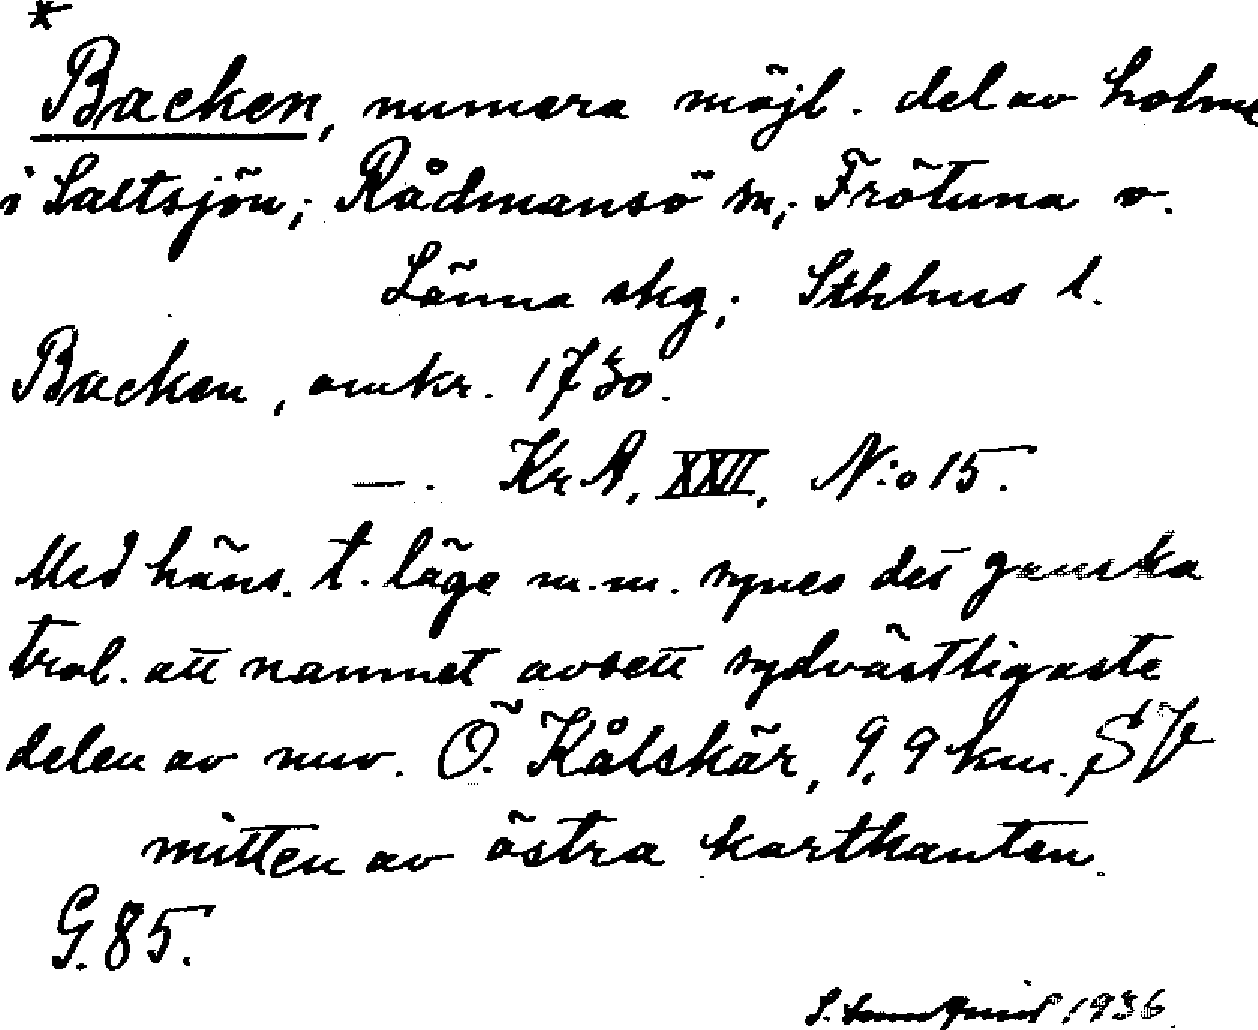 *
Backen, numera möjl. del av holme
i Saltsjön; Rådmansö sn; Frötuna o.
Länna skg; Sthlms l.
Backen, omkr. 1730.
—. KrA, XXVII, N:o 15.
Med häns. t. läge m.m. synes det ganska
trol. att namnet avsett sydvästligaste
delen av nuv. Ö. Kålskär, 9,9 km. SV
mitten av östra kartkanten.
G. 85.
S. 1936